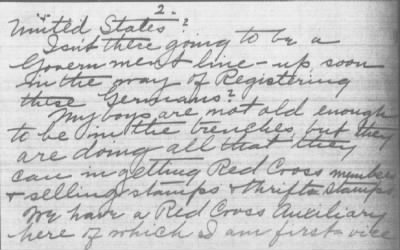 2.
United States?
Isn't there going to be a
Government line-up soon
in the way of Registering
these Germans?
My boys are not old enough
to be in the trenches, but they
are doing all that they
can in getting Red Cross members
& selling stamps & thrift stamps
We have a Red Cross Auxiliary
here of which I am first vice